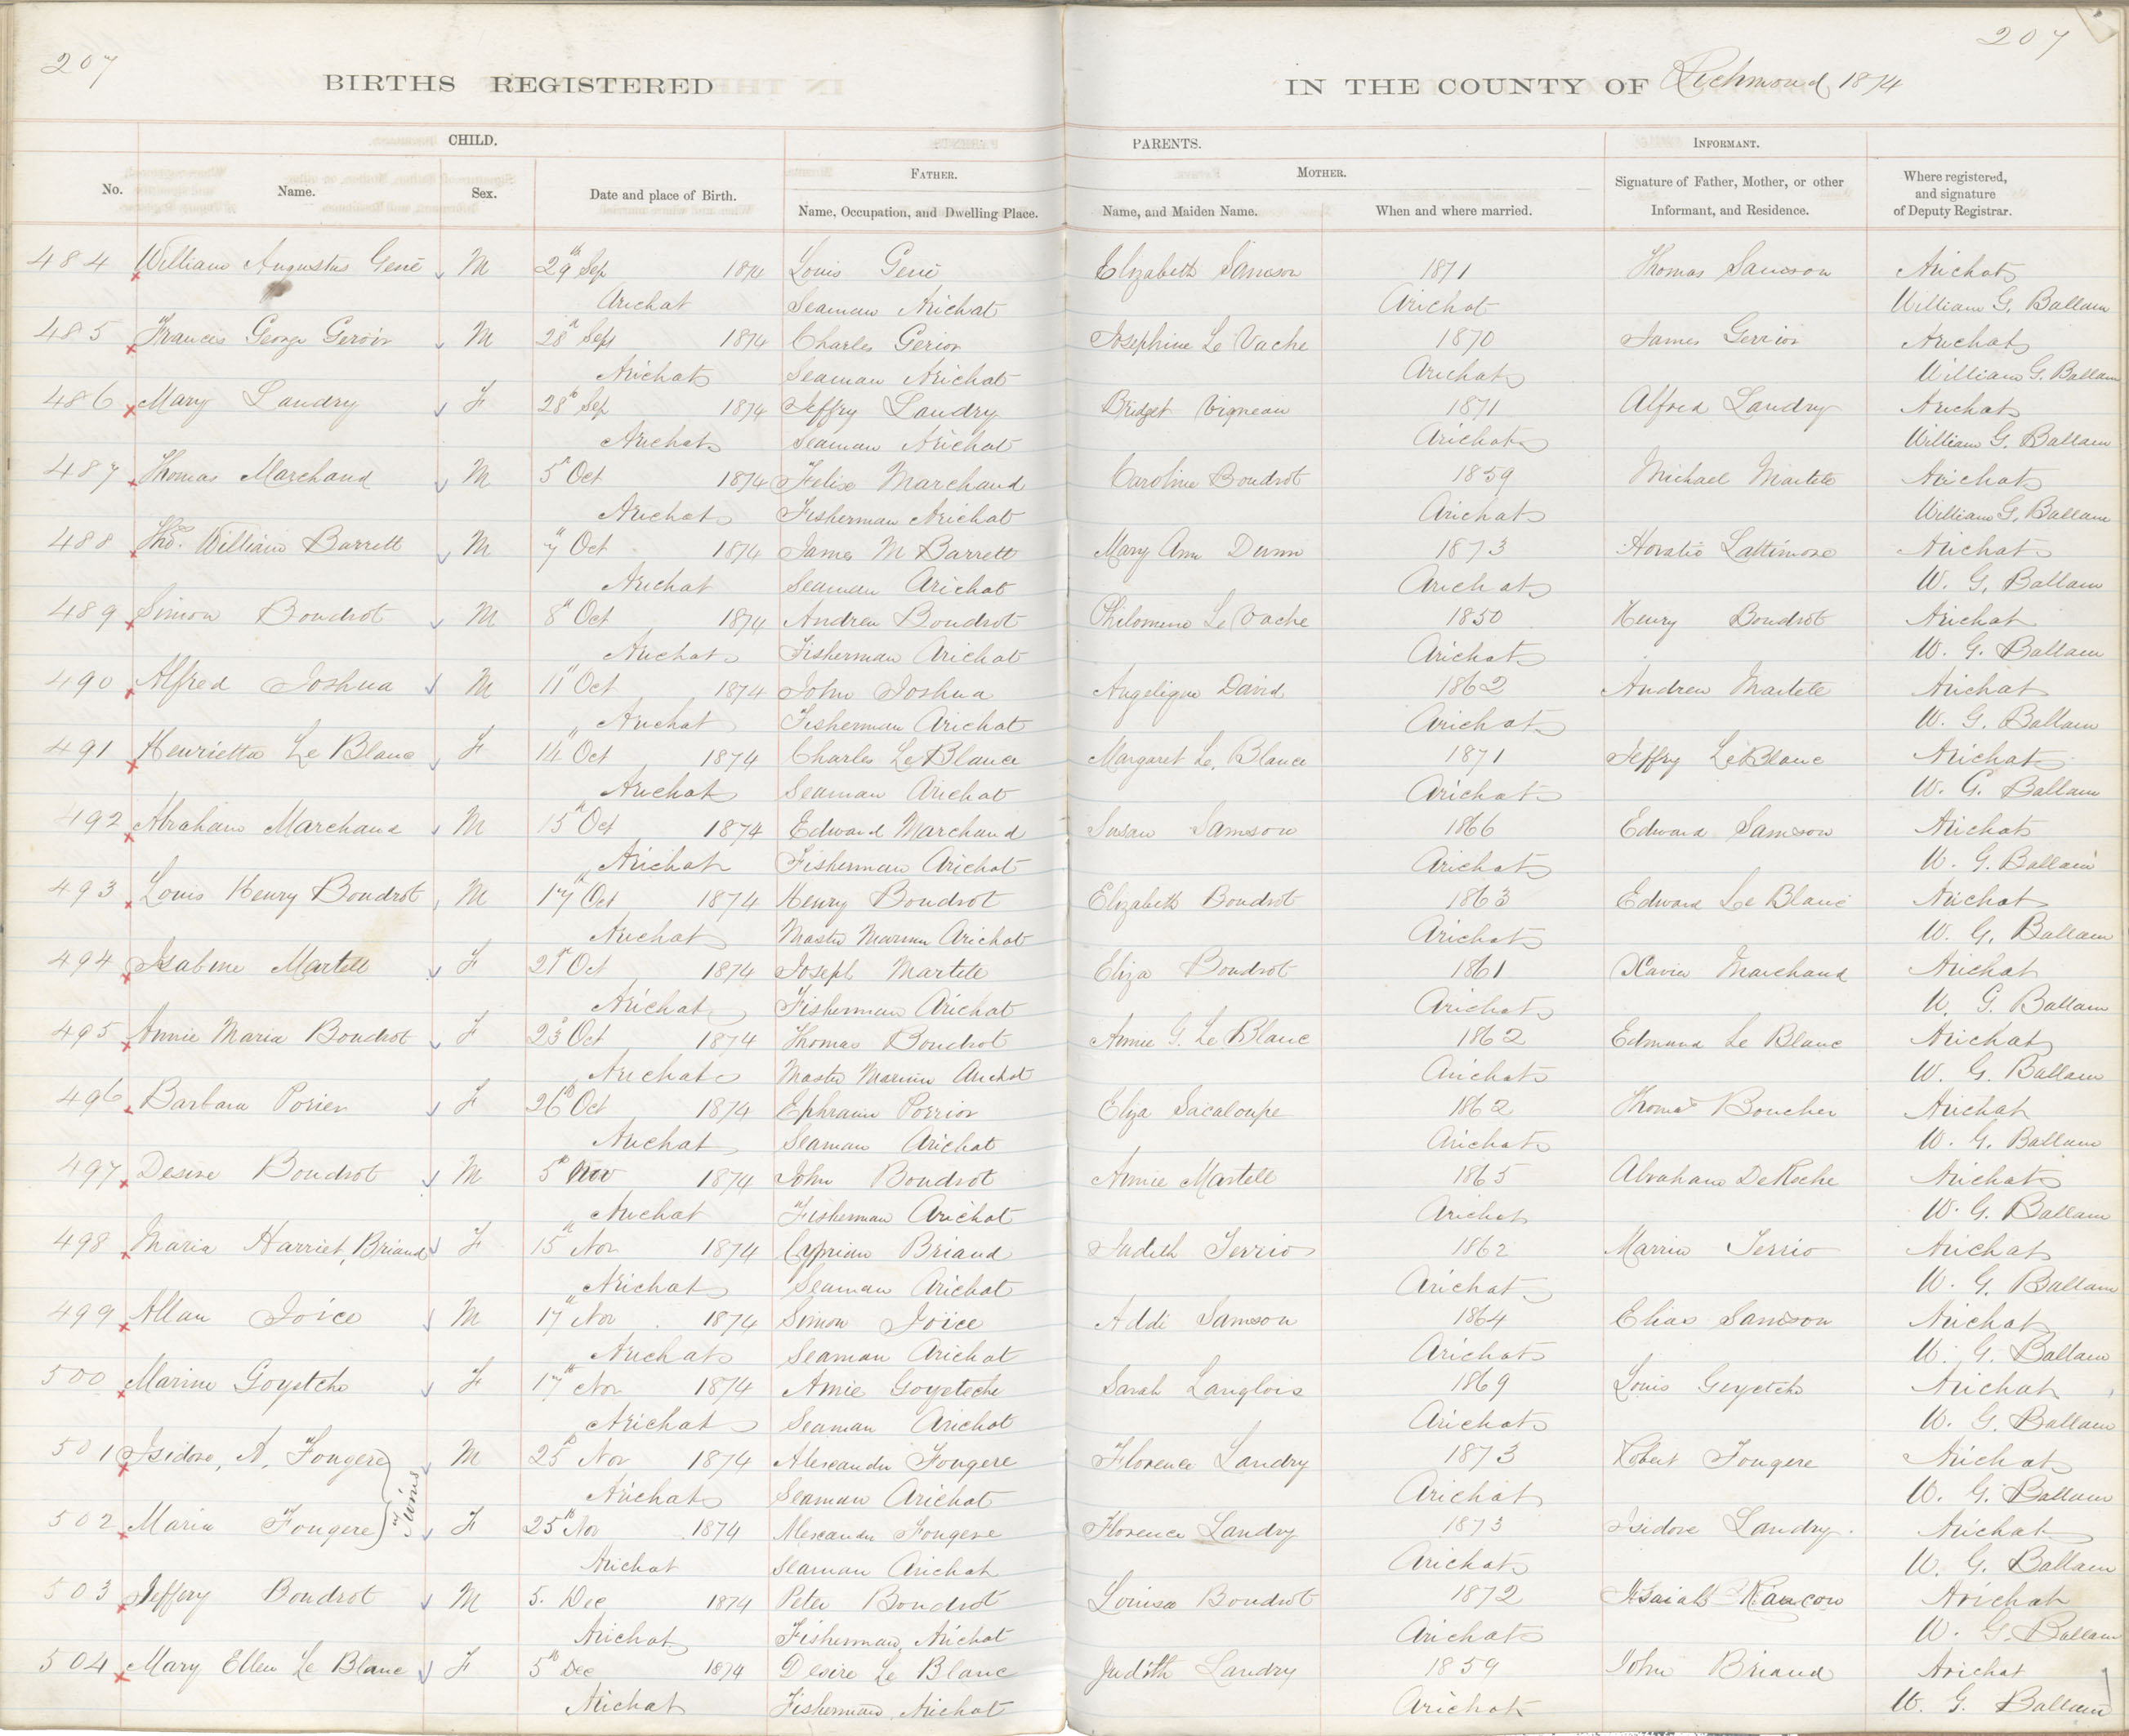 207
207
BIRTHS REGISTERED
IN THE COUNTY OF Richmond 1874
CHILD.
PARENTS.
INFORMANT.
No.
Name.
Sex.
Date and place of Birth.
FATHER.
Name, Occupation, and Dwelling Place.
MOTHER.
Name, and Maiden Name.
When and where married.
Signature of Father, Mother, or other
Informant, and Residence.
Where registered,
and signature
of Deputy Registrar.
484 William Augustus Gerié M 29th Sep 1874 Louis Gerié Elizabeth Samson 1871 Thomas Samson Arichat
Arichat Seaman Arichat Arichat William G. Ballam
485 Francis George Geroir M 28th Sep 1874 Charles Gerior Josephine Le Vache 1870 James Gerrior Arichat
Arichat Seaman Arichat Arichat William G. Ballam
486 Mary Landry F 28th Sep 1874 Jeffry Landry Bridget Vigneau 1871 Alfred Landry Arichat
Arichat Seaman Arichat Arichat William G. Ballam
487 Thomas Marchand M 5th Oct 1874 Felix Marchand Caroline Boudrot 1859 Michael Martete Arichat
Arichat Fisherman Arichat Arichat William G. Ballam
488 Thos. William Barrett M 7th Oct 1874 James M Barrett Mary Ann Dunn 1873 Horatio Lattimore Arichat
Arichat Seaman Arichat Arichat W. G. Ballam
489 Simon Boudrot M 8th Oct 1874 Andrew Boudrot Philomene Le Vache 1850 Henry Boudrot Arichat
Arichat Fisherman Arichat Arichat W. G. Ballam
490 Alfred Joshua M 11th Oct 1874 John Joshua Angelique David 1862 Andrew Martete Arichat
Arichat Fisherman Arichat Arichat W. G. Ballam
491 Henrietta Le Blanc F 14th Oct 1874 Charles Le Blance Margaret Le Blance 1871 Jeffry LeBlanc Arichat
Arichat Seaman Arichat Arichat W. G. Ballam
492 Abraham Marchand M 15th Oct 1874 Edward Marchand Susan Samson 1866 Edward Samson Arichat
Arichat Fisherman Arichat Arichat W. G. Ballam
493 Louis Henry Boudrot M 17th Oct 1874 Henry Boudrot Elizabeth Boudrot 1863 Edward Le Blanc Arichat
Arichat Master Mariner Arichat Arichat W. G. Ballam
494 Isabine Martell F 21st Oct 1874 Joseph Martete Eliza Boudrot 1861 Xavier Marchand Arichat
Arichat Fisherman Arichat Arichat W. G. Ballam
495 Annie Maria Boudrot F 23d Oct 1874 Thomas Boudrot Annie G. Le Blanc 1862 Edmund Le Blanc Arichat
Arichat Master Mariner Arichat Arichat W. G. Ballam
496 Barbara Porier F 26th Oct 1874 Ephraim Porrior Eliza Sacaloupe 1862 Thomas Boucher Arichat
Arichat Seaman Arichat Arichat W. G. Ballam
497 Desire Boudrot M 5th Nov 1874 John Boudrot Annie Martell 1865 Abraham DeRoche Arichat
Arichat Fisherman Arichat Arichat W. G. Ballam
498 Maria Harriet, Briand F 15th Nov 1874 Cyprian Briand Judith Terrio 1862 Marrin Terrio Arichat
Arichat Seaman Arichat Arichat W. G. Ballam
499 Allan Joice M 17th Nov 1874 Simon Joice Addi Samson 1864 Elias Samson Arichat
Arichat Seaman Arichat Arichat W. G. Ballam
500 Marine Goyetche F 17th Nov 1874 Amie Goyeteche Sarah Langlois 1869 Louis Goyetche Arichat
Arichat Seaman Arichat Arichat W. G. Ballam
501 Isidore, A, Fougere M 25th Nov 1874 Alexander Fougere Florence Landry 1873 Robert Fougere Arichat
Twins
Arichat Seaman Arichat Arichat W. G. Ballam
502 Maria Fougere F 25th Nov 1874 Alexander Fougere Florence Landry 1873 Isidore Landry Arichat
Arichat Seaman Arichat Arichat W. G. Ballam
503 Jeffery Boudrot M 5. Dec 1874 Peter Boudrot Louisa Boudrot 1872 Isaiah Rancow Arichat
Arichat Fisherman, Arichat Arichat W. G. Ballam
504 Mary Ellen Le Blanc F 5th Dec 1874 Desire Le Blanc Judith Landry 1859 John Briand Arichat
Arichat Fisherman Arichat Arichat W. G. Ballam